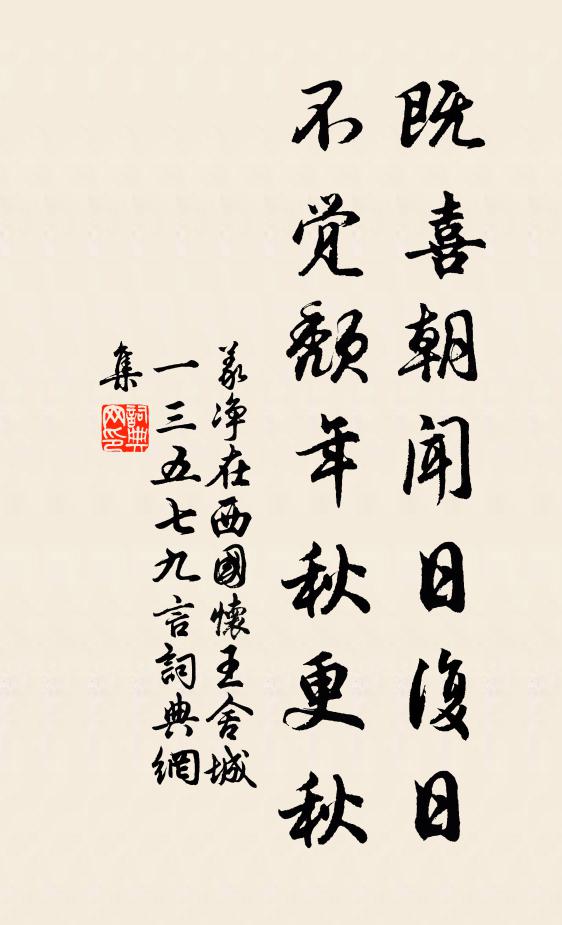 既喜朝闻日復日
不觉颓年秋更秋
義净在西國懷王舍城
一三五七九言詞典網
集
詞典
网印